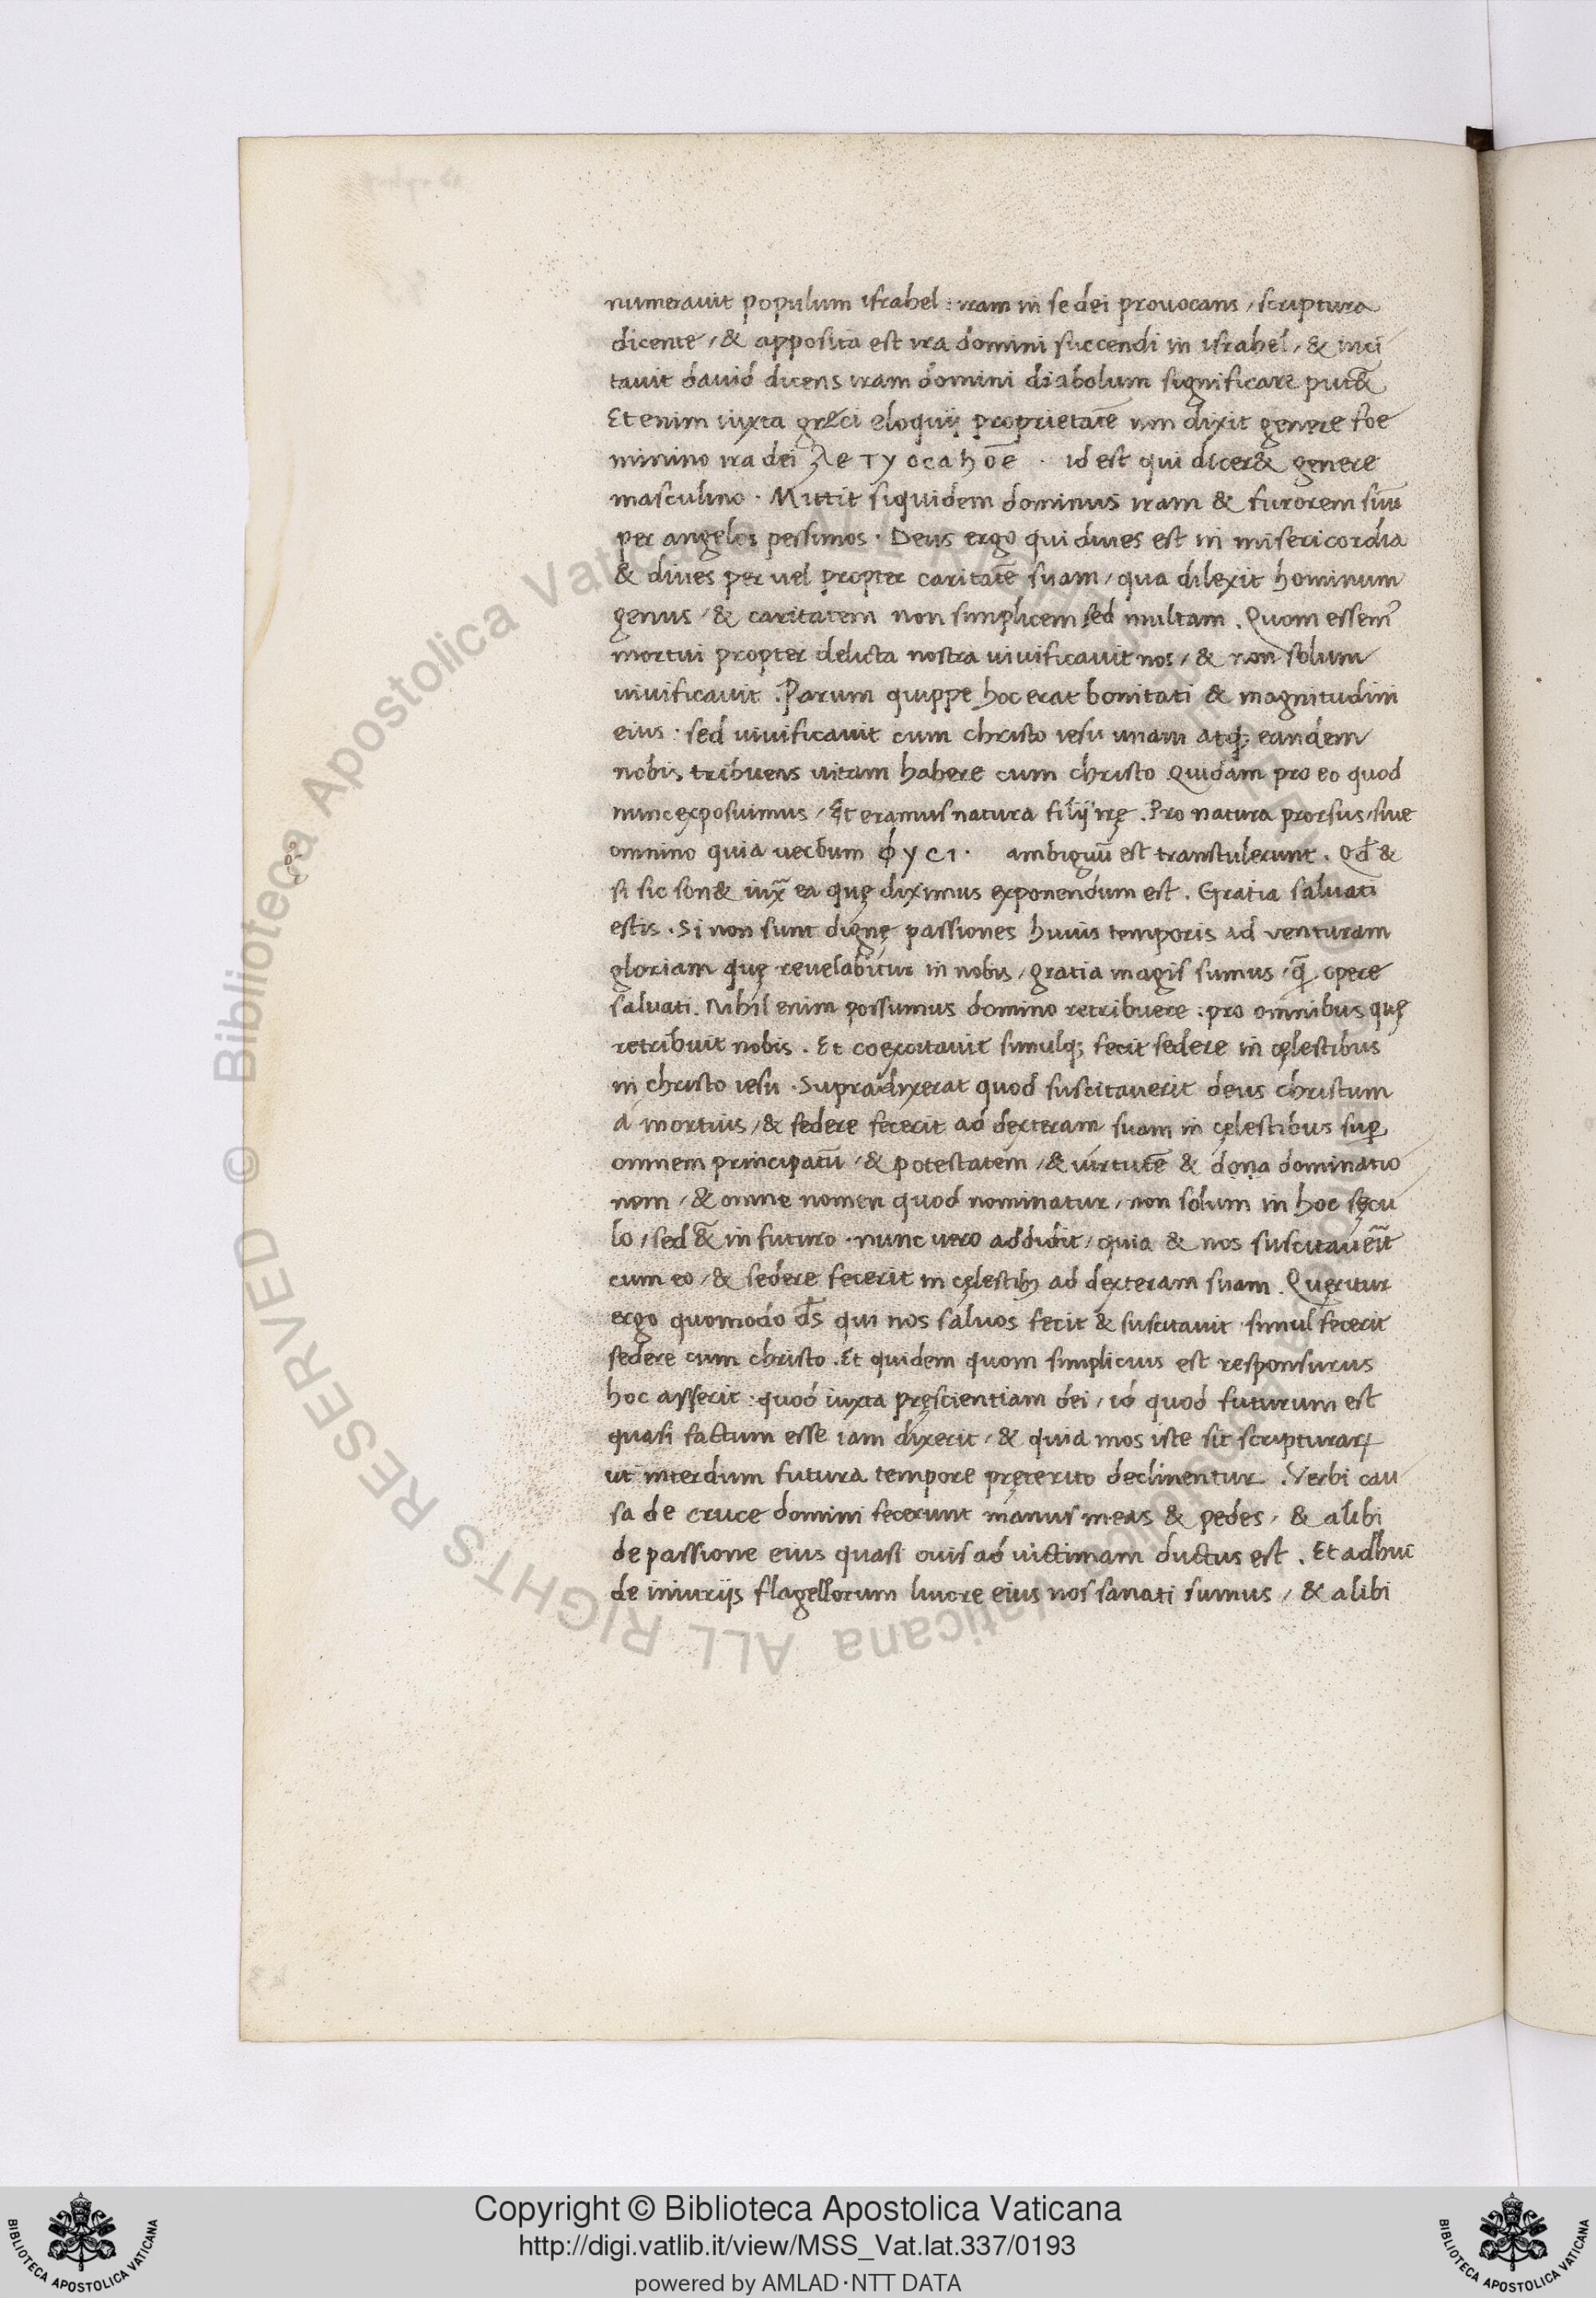 numerauit populum israhel: iram in se dei prouocans / scriptura
dicente / & apposita est ira domini succendi in israhel / & inci
tauit dauid dicens iram domini diabolum significare put&
Et enim iuxta greci eloquij proprietatē non dixit genere foe
minino ira dei id est qui dicer& genere
masculino . Mittit siquidem dominus iram & furorem suū
per angelos pessimos . Deus ergo qui diues est in misericordia
& diues per uel propter caritatē suam / qua dilexit hominum
genus / & caritatem non simplicem sed multam . Quom essem᾽
mortui propter delicta nostra uiuificauit nos / & non solum
uiuificauit . Parum quippe hoc erat bonitati & magnitudini
eius : sed uiuificauit cum christo iesu unam atq; eandem
nobis tribuens uitam habere cum christo Quidam pro eo quod
nunc exposuimus / Et eramus natura filij irę . Pro natura prorsus / siue
omnino quia uerbum ϕυϲι . ambiguū est transtulerunt . Qd̄ &
si sic son& iux̄ ea quę diximus exponendum est . Gratia saluati
estis . Si non sunt dignę passiones huius temporis ad venturam
gloriam quę reuelabitur in nobis / gratia magis sumus / q̄ opere
saluati . Nihil enim possumus domino retribuere : pro omnibus quę
retribuit nobis . Et coexcitauit simulq; fecit sedere in cęlestibus
in christo iesu . Supradixerat quod suscitauerit deus christum
a mortuis / & sedere fecerit ad dexteram suam in cęlestibus suꝑ
omnem principatū / & potestatem / & uirtutē & dona dominatio
nem / & omne nomen quod nominatur / non solum in hoc sęcu
lo / sed &̄ in futuro . nunc uero addidit / quia & nos suscitauerit
cum eo / & sedere fecerit in cęlestib; ad dexteram suam . Quęritur
ergo quomodo d̄s qui nos saluos fecit & suscitauit simul fecerit
sedere cum christo . Et quidem quom simplicius est responsurus
hoc asserit : quod iuxta pręscientiam dei / id quod futurum est
quasi factum esse iam dixerit / & quia mos iste sit scripturaꝝ
ut interdum futura tempore pręterito declinentur . Verbi cau
sa de cruce domini fecerunt manus meas & pedes / & alibi
de passione eius quasi ouis ad uictimam ductus est . Et adhuc
de iniurijs flagellorum liuore eius nos sanati sumus / & alibi
© Biblioteca Apostolica Vaticana ALL RIGHTS RESERVED
Copyright © Biblioteca Apostolica Vaticana
http://digi.vatlib.it/view/MSS_Vat.lat.337/0193
powered by AMLAD·NTT DATA
BIBLIOTECA APOSTOLICA VATICANA
BIBLIOTECA APOSTOLICA VATICANA